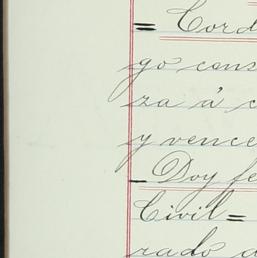 = Cord
go cons
za á c
y vence
= Doy fe
Civil =
rado a